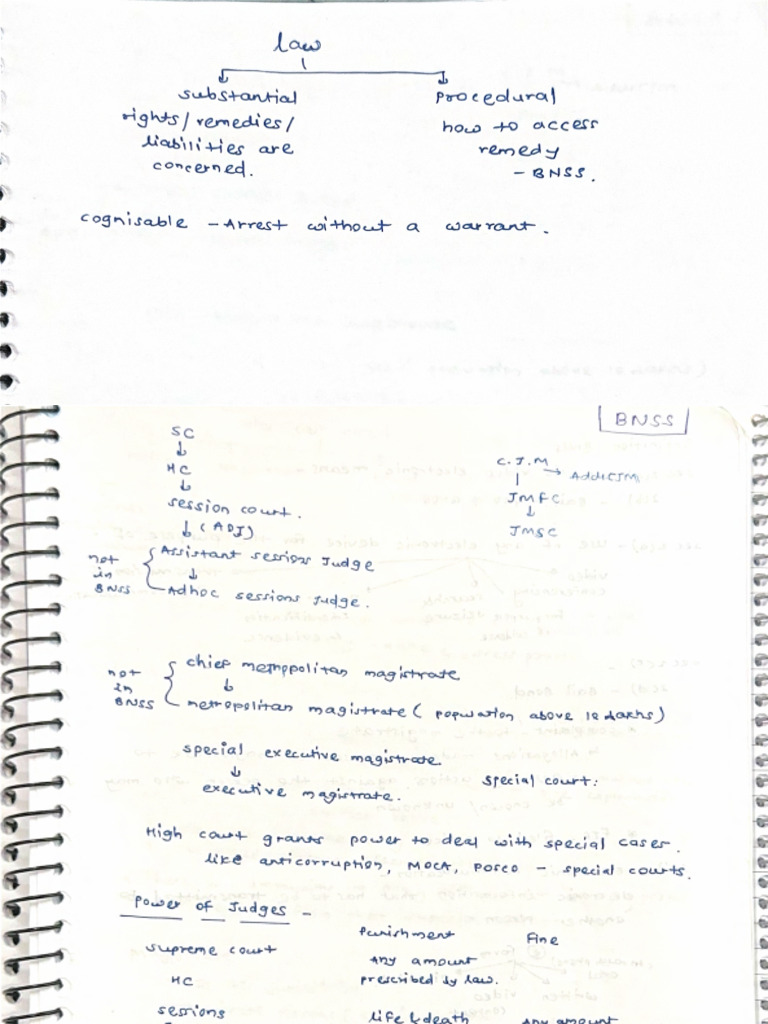 law
substantial
rights/remedies/
liabilities are
concerned.
Procedural
how to access
remedy
- BNSS.
cognisable - Arrest without a warrant.
BNSS
SC
HC
session court.
(ADJ)
not in BNSS
Assistant sessions Judge
Adhoc sessions Judge.
C.J.M
JMFC
JMSC
not in BNSS
chief metropolitan magistrate
metropolitan magistrate (population above 10 lakhs)
special executive magistrate
executive magistrate.
special court:
High court grants power to deal with special cases.
like anticorruption, MOCA, POSCO - special courts.
Power of Judges -
Punishment
Fine
supreme court
Any amount
HC
prescribed by law.
sessions
life & death
Any amount